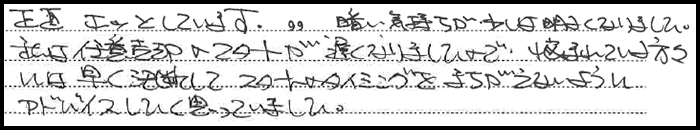 正直 ホッとしています。 暗い気持ちが少しは明るくなりました。
私は任意売却のスタートが遅くなりましたので、悩まれている方々
には早く決断してスタートのタイミングをまちがえないように
アドバイスしたく思っていました。